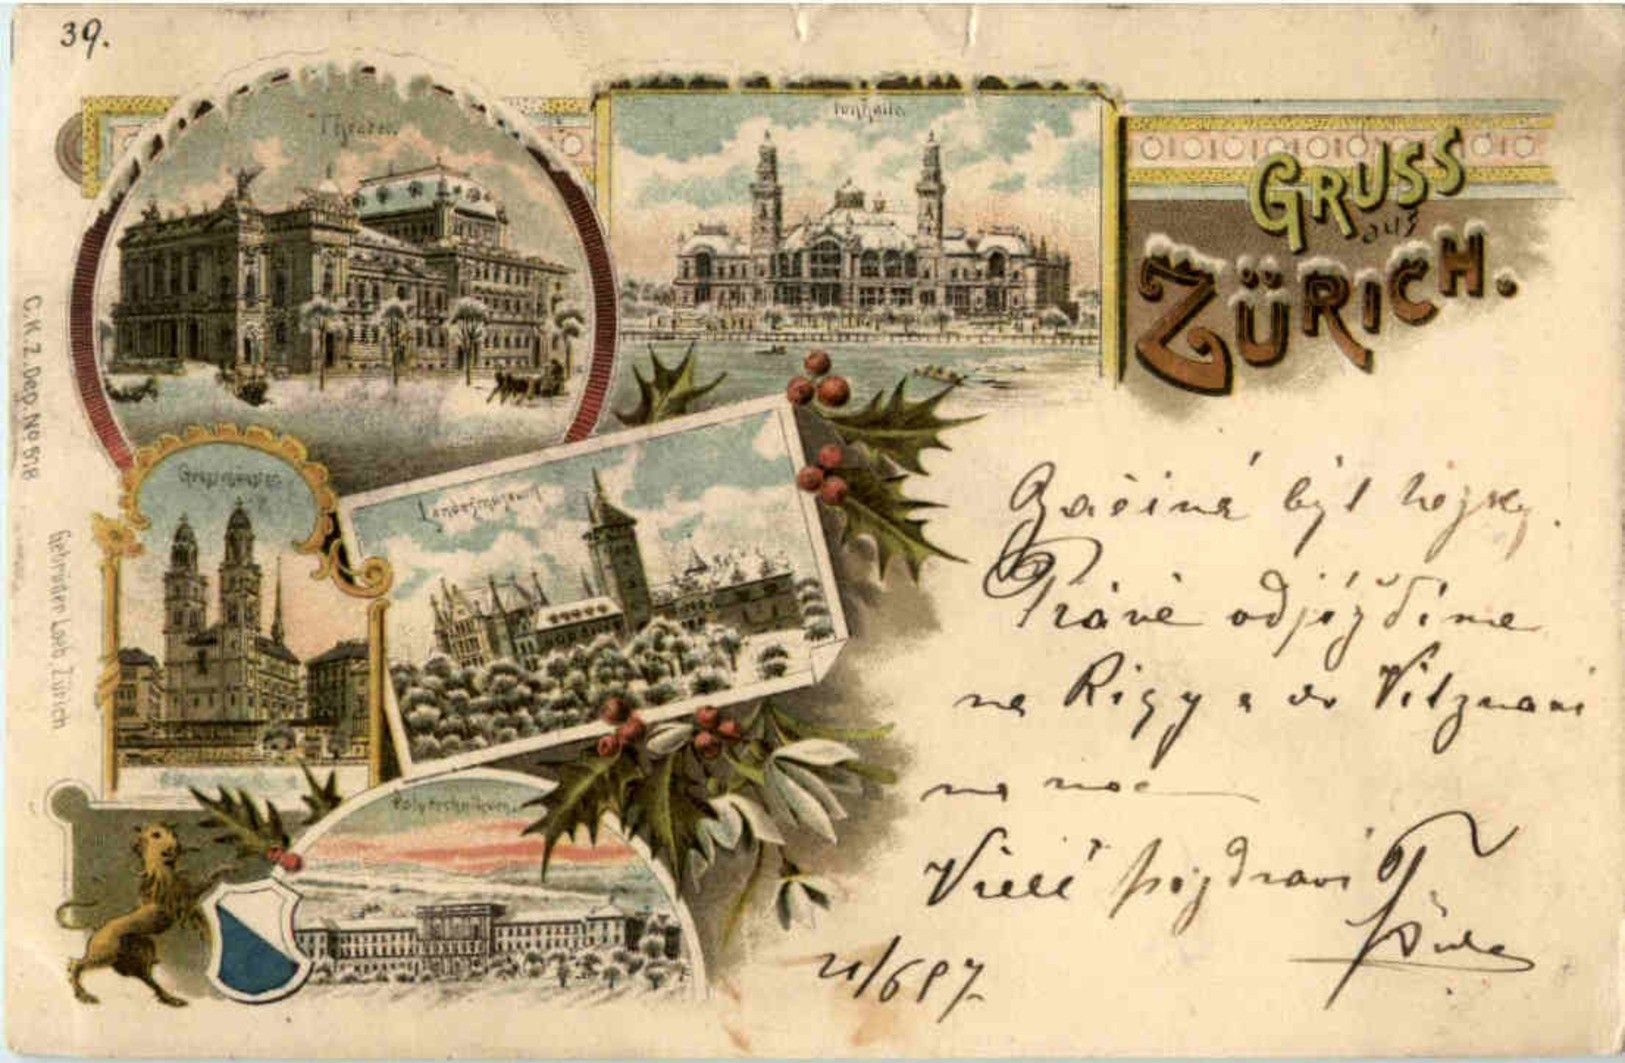 39.
Theater.
Tonhalle.
GRUSS
aus
ZÜRICH.
Grossmünster.
Landesmuseum
Polytechnikum.
C.K.Z. Dep. No 518
Gebrüder Loeb, Zürich
Začíná být hezky.
Právě odjíždíme
na Rigy a do Vitznau
na noc
Vřelé pozdraví
21/6 97.